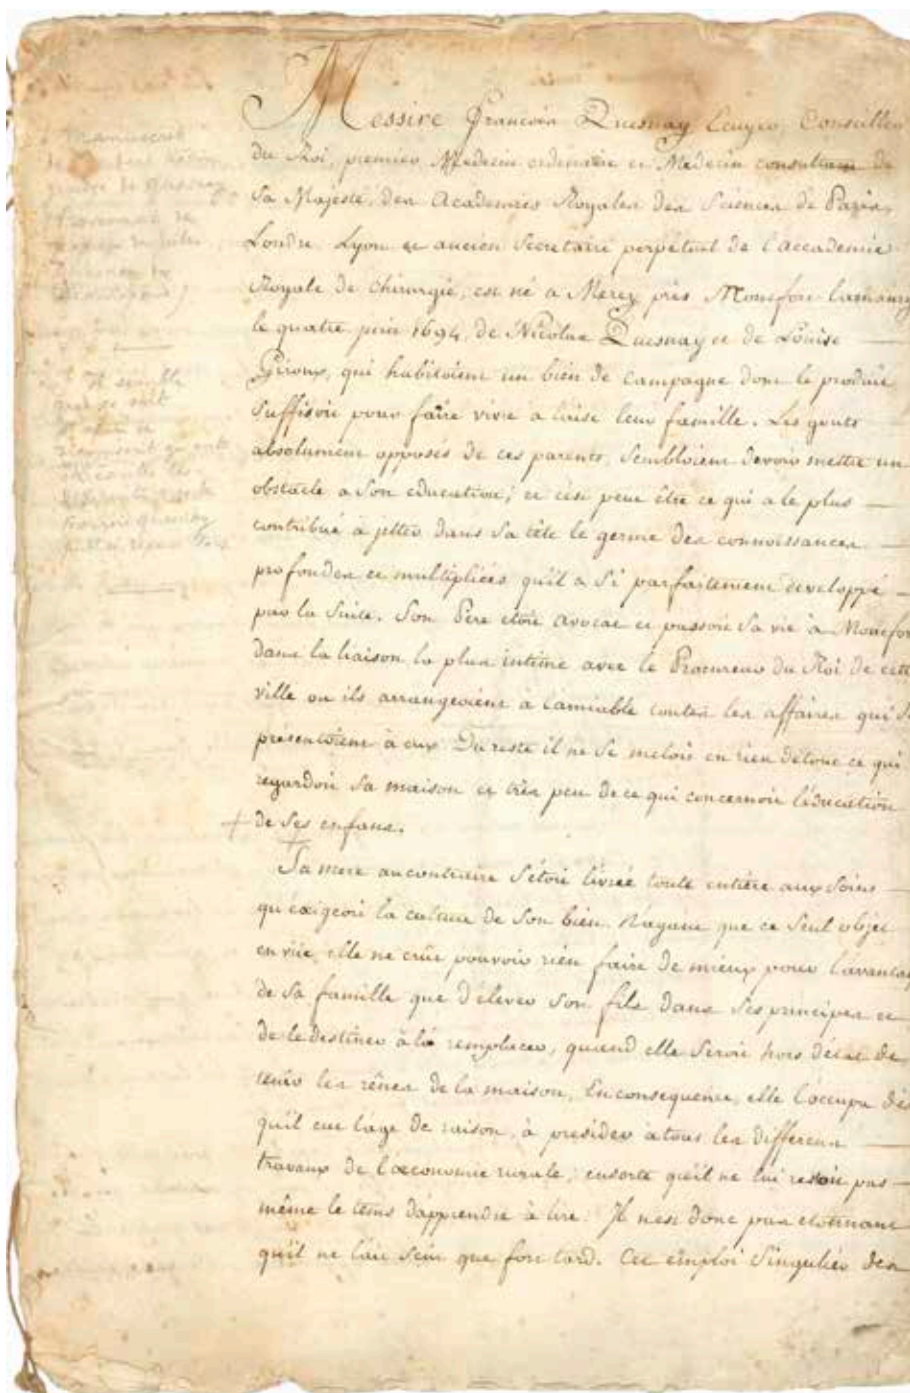 Manuscrit
Il semble
que ce soit
Messire François Quesnay Ecuyer, Conseiller
du Roi, premier Medecin ordinaire et Medecin consultant de
Sa Majesté, des Academies Royales des Sciences de Paris,
Londre, Lyon et ancien Secretaire perpétuel de l'accademie
Royale de Chirurgie, est né a Merez près Monfort-lamaury
le quatre juin 1694, de Nicolas Quesnay et de Louise
Giroux, qui habitoient un bien de campagne dont le produit
suffisoit pour faire vivre a laise leur famille. Les gouts
absolument opposés de ces parents, sembloient devoir mettre un
obstacle a son education; et c'est peut être ce qui a le plus
contribué a jetter dans sa tête le germe des connoissances
profondes et multipliées qu'il a si parfaitement developpé
par la suite. Son Père etoit avocat et passoit sa vie à Monfor
dans la liaison la plus intime avec le Procureur du Roi de cette
ville ou ils arrangeoient à l'amiable toutes les affaires qui se
présentoient à eux. Du reste il ne se meloit en rien detout ce qui
regardoit sa maison et très peu de ce qui concernoit l'éducation
de ses enfans.
Sa mere aucontraire s'étoit livrée toute entière aux soins
qu'exigeoit la culture de son bien. N'ayant que ce seul objet
en vüe, elle ne crût pouvoir rien faire de mieux pour l'avantag
de sa famille que d'élever son fils dans ses principes et
de le destiner à la remplacer, quand elle seroit hors d'état de
tenir les rênes de la maison. En consequence, elle l'occupa dès
qu'il eut l'age de raison, à presider à tous les differens
travaux de l'œconomie rurale; ensorte qu'il ne lui restoit pas
même le tems d'apprendre à lire. Il n'est donc pas etonnant
qu'il ne l'ait seu que fort tard. Cet emploi singulier des